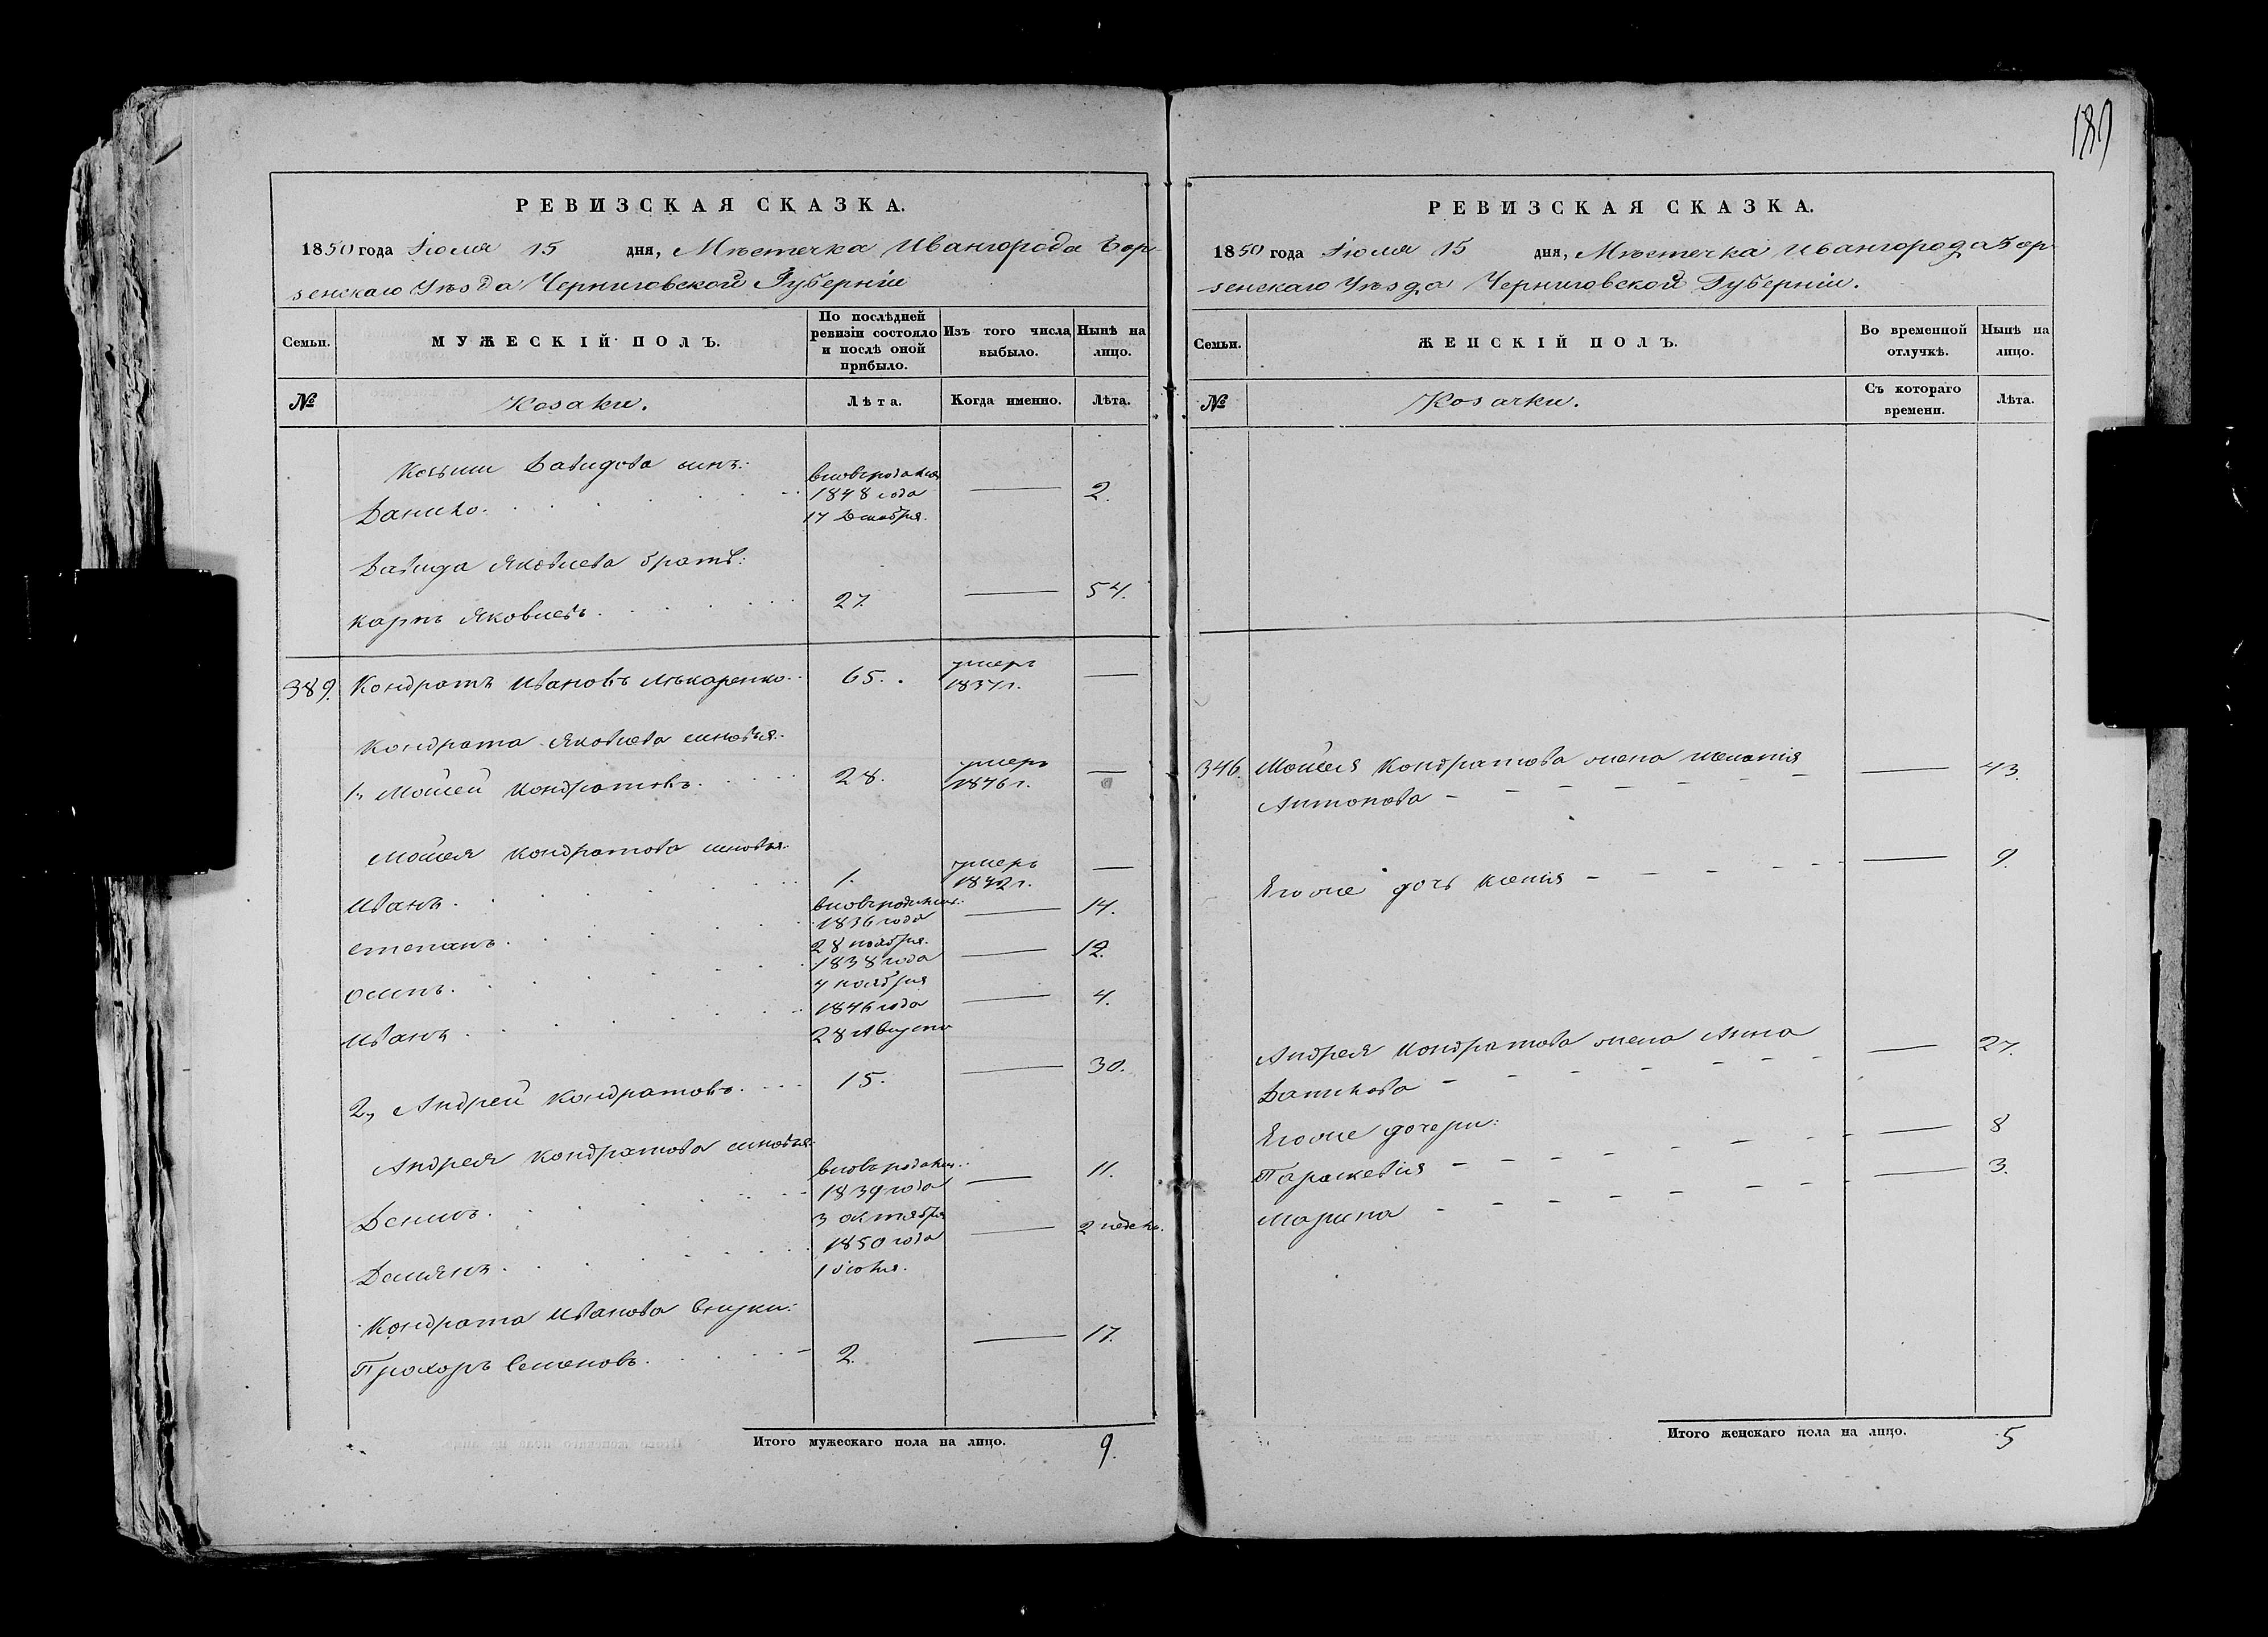 РЕВИЗСКАЯ СКАЗКА.
1850 года Іюля 15 дня, Мѣстечка Ивангорода Бор-
зенскаго Уѣзда Черниговской Губерніи
Семьи.
МУЖЕСКІЙ ПОЛЪ.
По послѣдней ревизіи состояло и послѣ оной прибыло.
Изъ того числа выбыло.
Нынѣ на лицо.
№
Козаки.
Лѣта.
Когда именно.
Лѣта.
Давидова сынъ:
Данило.
вновьрожден
1848 года
17 Декабря.
—
2.
Давида Яковлева братъ:
Карпъ Яковлевъ.
27.
—
54.
389. Кондратъ Ивановъ
65.
умеръ
1837 г.
—
Кондрата Яковлева сыновья:
1, Мойсей Кондратовъ.
28.
умеръ
1846 г.
—
Мойсея Кондратова сыновья:
Иванъ.
1.
умеръ
1842 г.
—
Степанъ.
1836 года
28 ноября.
—
14.
Осипъ.
1838 года
4 ноября
—
12.
Иванъ.
1846 года
28 Августа
—
4.
2, Андрей Кондратовъ.
15.
—
30.
Андрея Кондратова сыновья:
Денисъ.
1839 года
3 октября
—
11.
Демянъ.
1850 года
1 Іюля.
—
2 недели.
Кондрата Иванова внуки:
Прохоръ Семеновъ.
2.
—
17.
Итого мужескаго пола на лицо.
9.
189
РЕВИЗСКАЯ СКАЗКА.
1850 года Іюля 15 дня, Мѣстечка Ивангорода Бор-
зенскаго Уѣзда Черниговской Губерніи.
Семьи.
ЖЕНСКІЙ ПОЛЪ.
Во временной отлучкѣ.
Нынѣ на лицо.
№
Козачки.
Съ котораго времени.
Лѣта.
346. Мойсея Кондратова жена Меланія
Антонова
—
43.
Его же дочь Ксенія
—
9.
Андрея Кондратова жена Анна
Данилова
—
27.
Его же дочери:
Параскевія
—
8
Марина
—
3.
Итого женскаго пола на лицо.
5